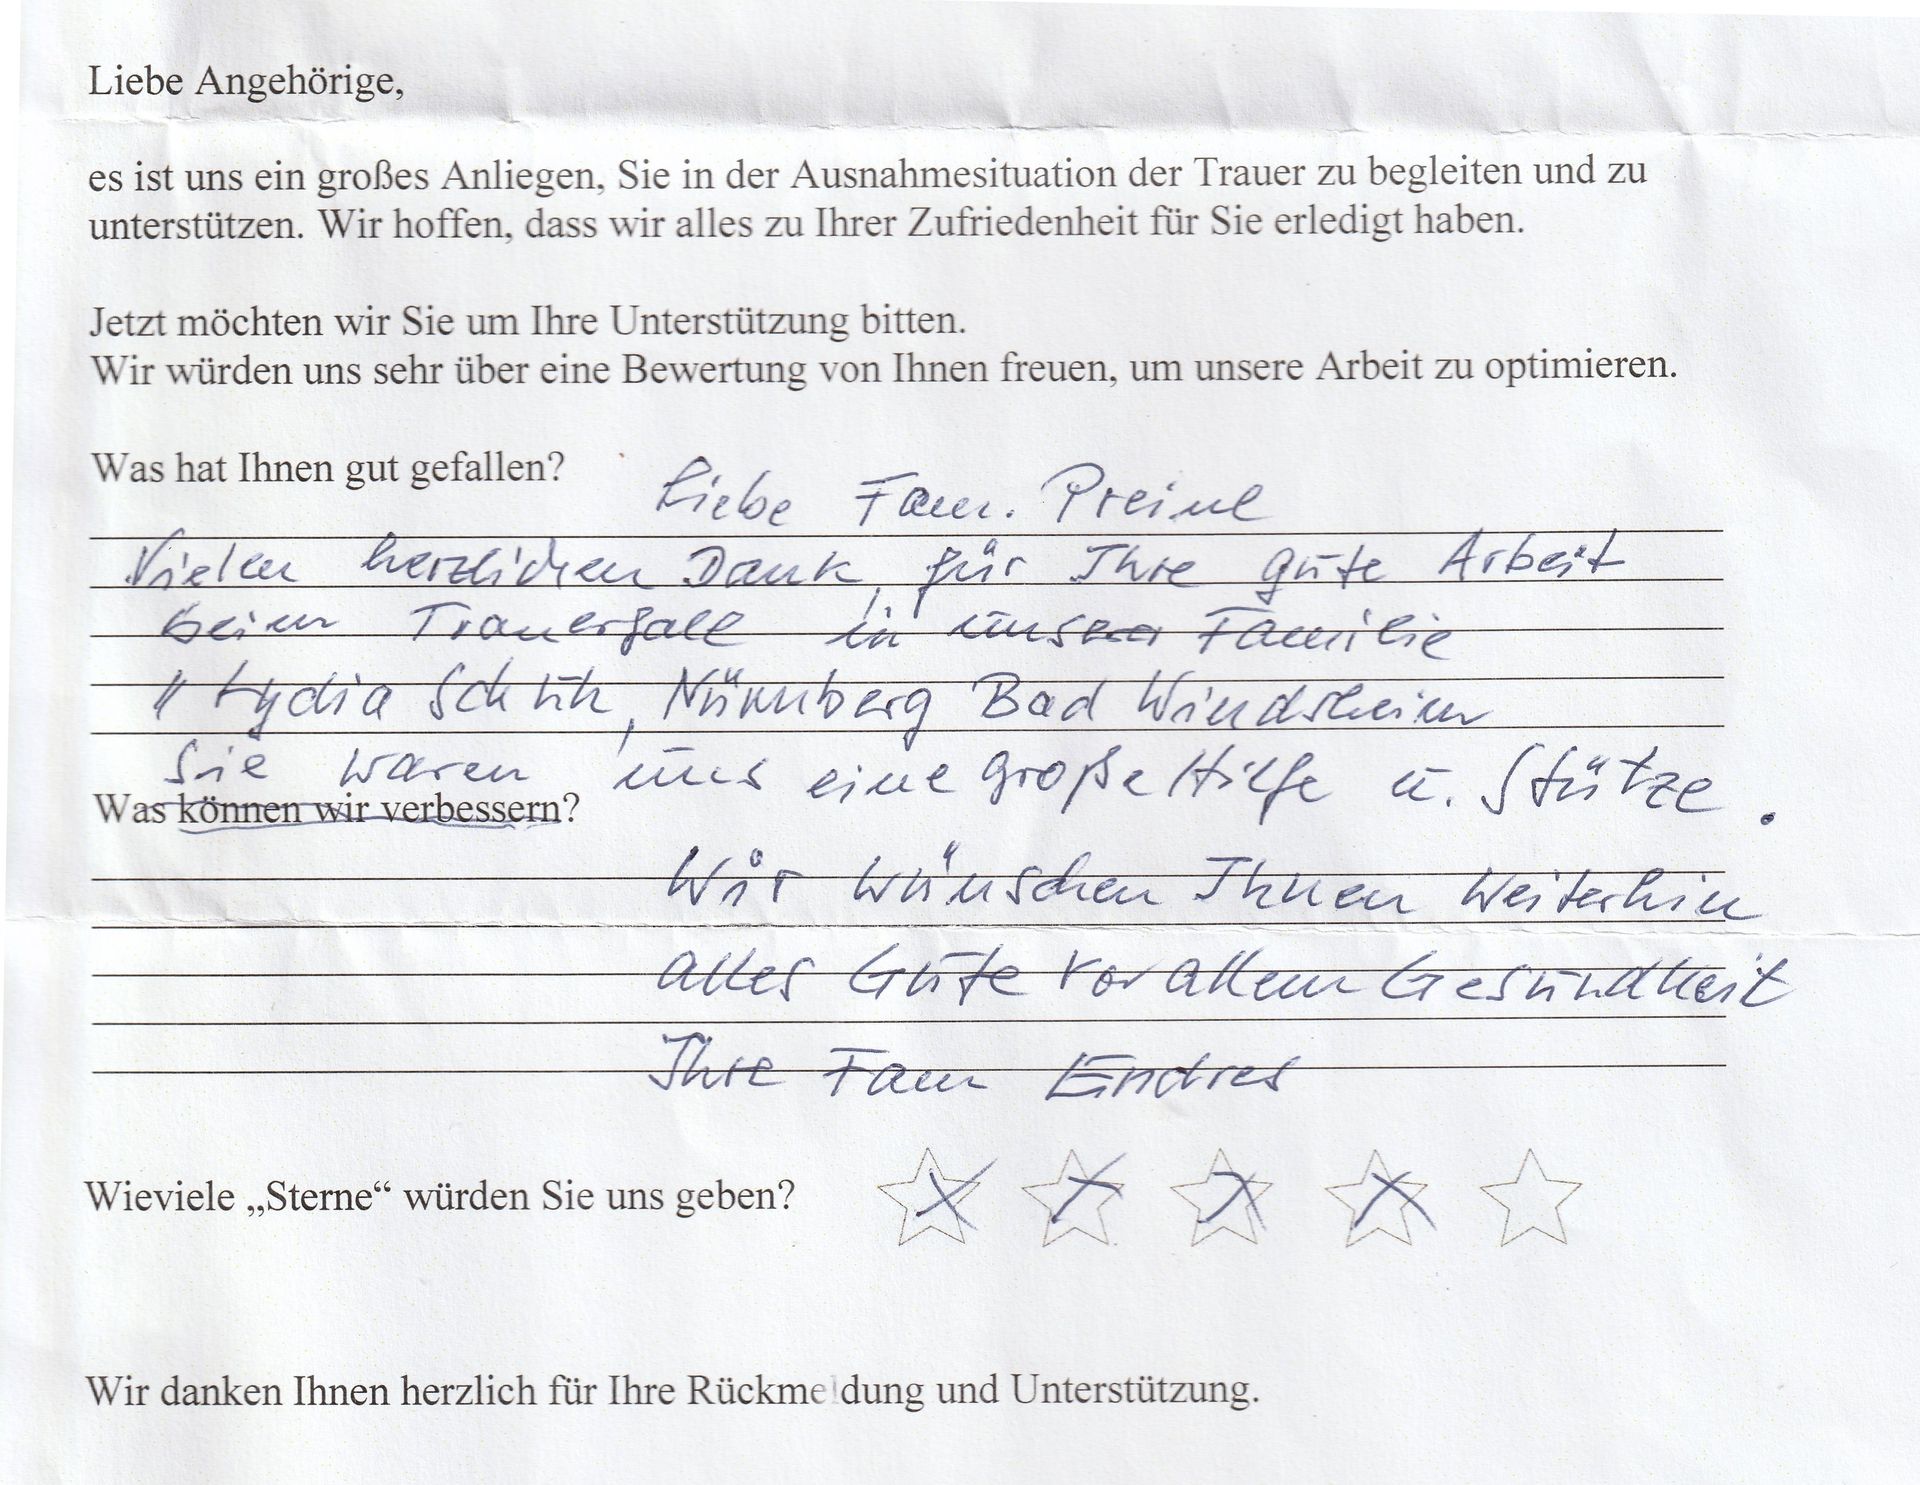 Liebe Angehörige,
es ist uns ein großes Anliegen, Sie in der Ausnahmesituation der Trauer zu begleiten und zu
unterstützen. Wir hoffen, dass wir alles zu Ihrer Zufriedenheit für Sie erledigt haben.
Jetzt möchten wir Sie um Ihre Unterstützung bitten.
Wir würden uns sehr über eine Bewertung von Ihnen freuen, um unsere Arbeit zu optimieren.
Was hat Ihnen gut gefallen?
Liebe Fam. Preinl
Vielen herzlichen Dank, für Ihre gute Arbeit
beim Trauerfall in unserer Familie
" Lydia Nürnberg Bad Windsheim
Sie waren uns eine große Hilfe u. Stütze.
Was können wir verbessern?
Wir wünschen Ihnen weiterhin
alles Gute vor allem Gesundheit
Ihre Fam Endres
Wieviele „Sterne“ würden Sie uns geben?
Wir danken Ihnen herzlich für Ihre Rückmeldung und Unterstützung.